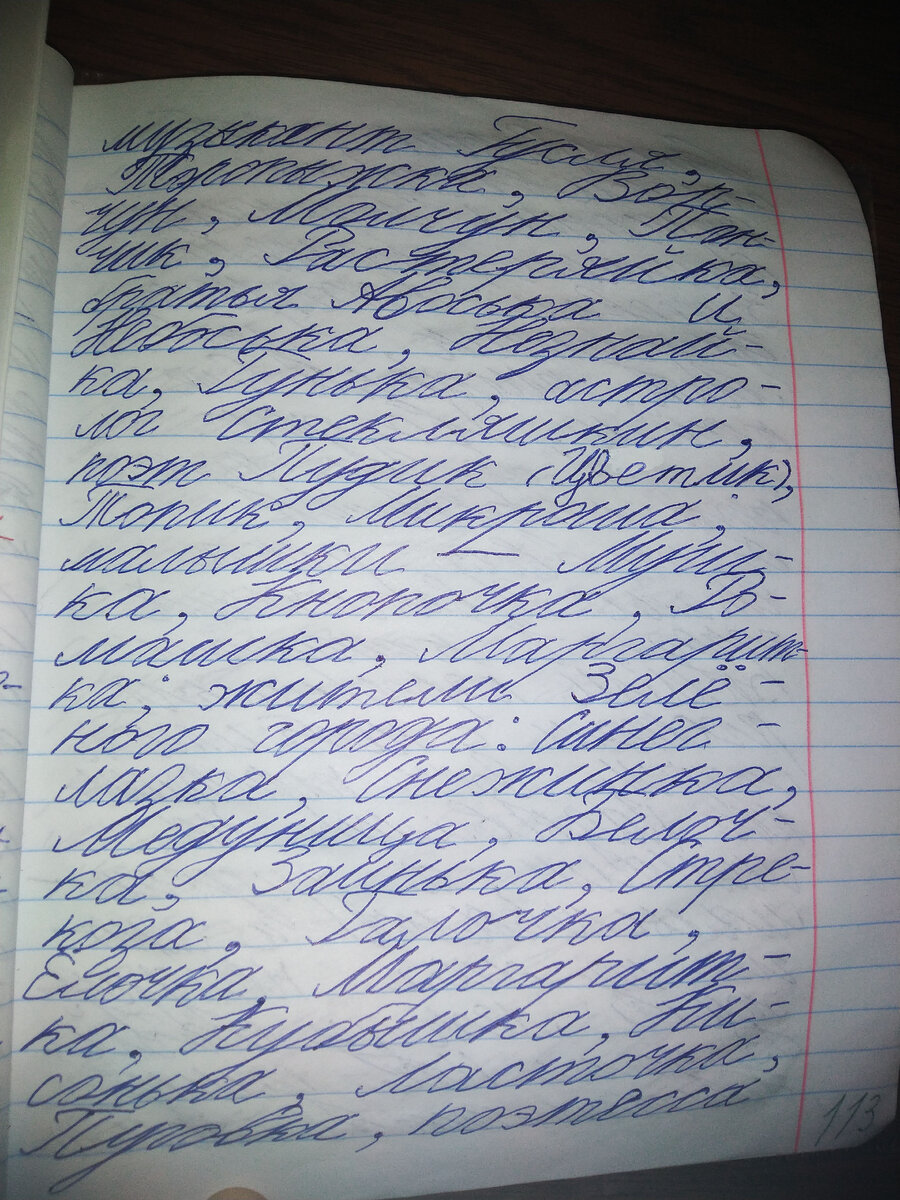 музыкант Гусля,
Торопыжка, Вор-
чун, Молчун, Пон-
чик, Растеряйка,
братья Авоська и
Небоська, Незнай-
ка, Гунька, астро-
лог Стекляшкин,
поэт Пудик (Цветик),
Топик, Микроша;
малышки — Муш-
ка, Кнопочка, Ро-
машка, Маргарит-
ка; жители Зелё-
ного города: Синег-
лазка, Снежинка,
Медуница, Белоч-
ка, Заинька, Стре-
коза, Галочка,
Ёлочка, Маргарит-
ка, Кубышка, Ки-
сонька, Ласточка,
Пуговка, поэтесса
113